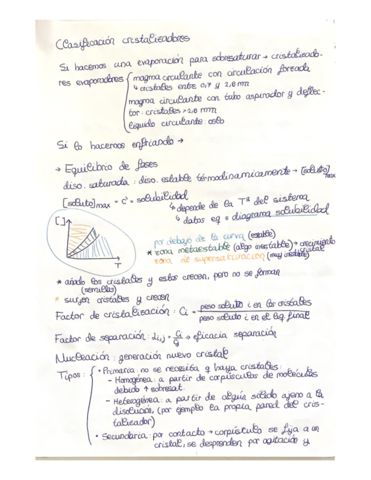 Clasificación cristalizadores
Si hacemos una evaporación para sobresaturar → cristalizado-
res evaporadores { magma circulante con circulación forzada
↳ cristales entre 0,4 y 2,0 mm
magma circulante con tubo aspirador y deflec-
tor. cristales > 2.0 mm
líquido circulante: oslo
Si lo hacemos enfriando →
→ Equilibrio de fases
diso. saturada: diso. estable termodinamicamente → [soluto]max
[soluto]max = c* = solubilidad
↳ depende de la Tª del sistema
↳ datos eq → diagrama solubilidad
[ ]
T
por debajo de la curva (estable)
* zona metaestable (algo inestable) → crecimiento cristal
zona de supersaturación (muy inestable)
* añado los cristales y estos crecen, pero no se forman
(semillas)
* surjen cristales y crecen
Factor de cristalización: Ci = peso soluto i en los cristales
peso soluto i en el liq. final
Factor de separación: Li,j = Ci/Cj → eficacia separación
Nucleación: generación nuevo cristal
Tipos: { • Primaria: no se necesita q haya cristales.
- Homogénea: a partir de corpúsculos de moléculas
debido ↑ sobresat.
- Heterogénea: a partir de algún sólido ajeno a la
disolución, (por ejemplo la propia pared del cris-
talizador)
• Secundaria: por contacto → corpúsculo se fija a un
cristal, se desprenden por agitación y